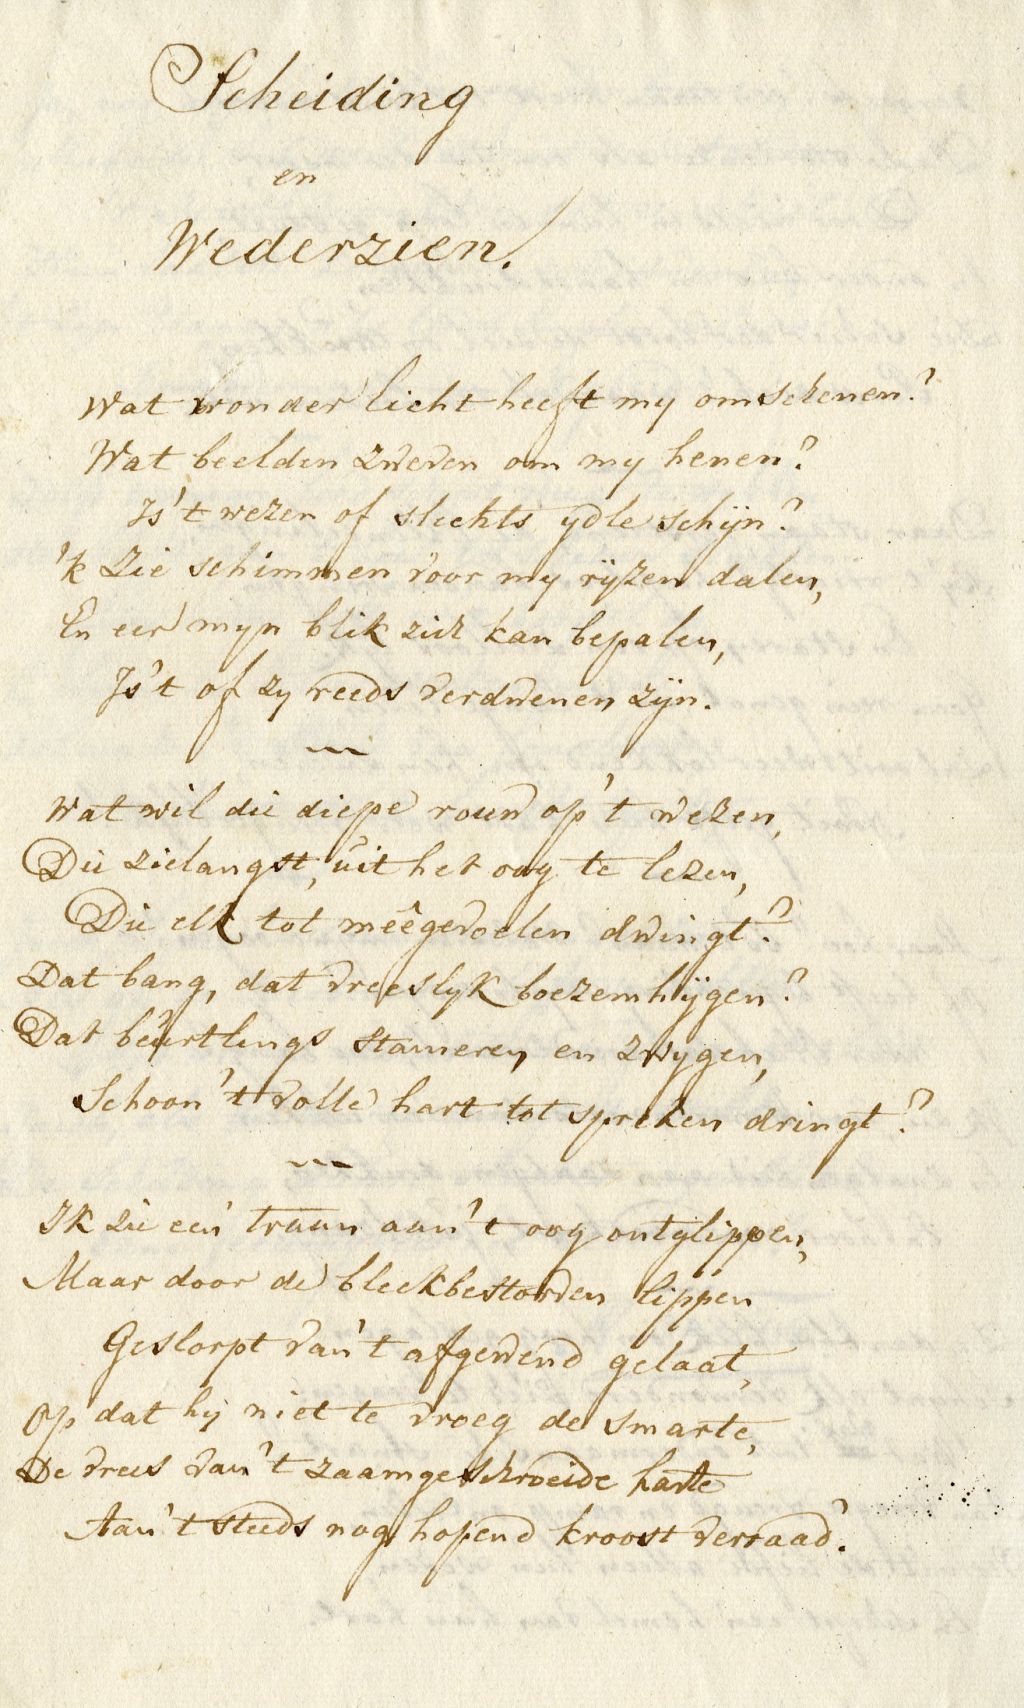 Scheiding
en
Wederzien.
Wat wonder licht heeft my omschenen?
Wat beelden zweven om my henen?
Is 't wezen of slechts ydle schijn?
'k Zie schimmen voor my ryzen dalen,
En eer myn blik zich kan bepalen,
Is 't of zy reeds verdwenen zijn.
Wat wil die diepe rouw op 't wezen,
Die zielangst, uit het oog te lezen,
Die elk tot meêgevoelen dwingt?
Dat bang, dat vreeslyk boezemhijgen?
Dat beurtlings stameren en zwygen,
Schoon 't volle hart tot spreken dringt?
Ik zie een' traan aan 't oog ontglippen,
Maar door de bleekbestorven lippen
Geslorpt van 't afgewend gelaat,
Op dat hij niet te vroeg de smarte,
De vrees van 't zaamgeschroeide harte
Aan 't steeds nog hopend kroost verraad'.